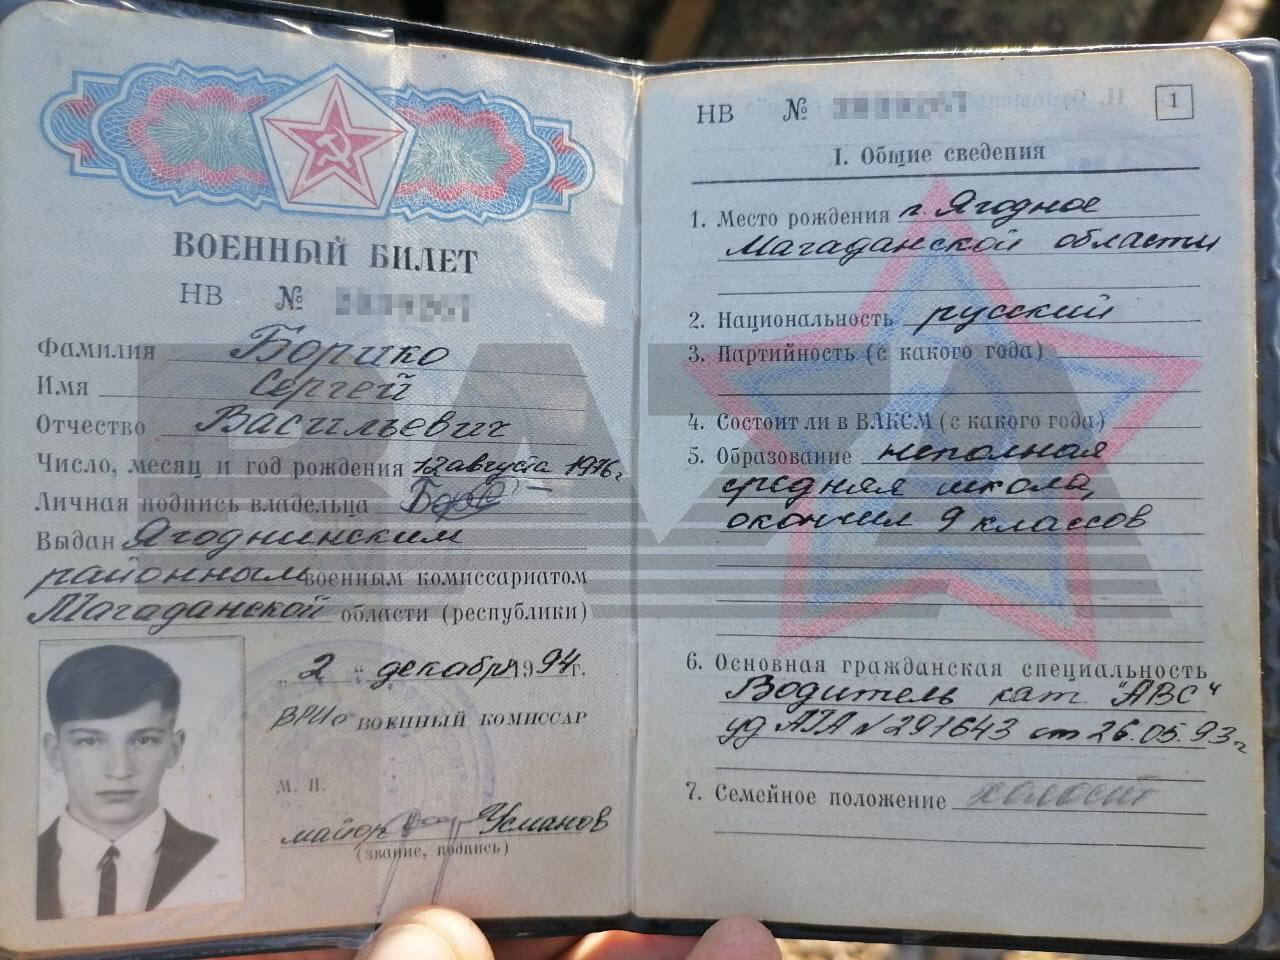 ВОЕННЫЙ БИЛЕТ
НВ №
Фамилия Борико
Имя Сергей
Отчество Васильевич
Число, месяц и год рождения 12 августа 1976 г
Личная подпись владельца
Выдан Ягоднинским
районным военным комиссариатом
Магаданской области (республики)
„2“ декабря 1994 г.
ВРИо военный комиссар
М. П.
майор Усманов
(звание, подпись)
НВ №
1
I. Общие сведения
1. Место рождения п. Ягодное
Магаданской области
2. Национальность русский
3. Партийность (с какого года)
4. Состоит ли в ВЛКСМ (с какого года)
5. Образование неполная
средняя школа,
окончил 9 классов
6. Основная гражданская специальность
Водитель кат. "АВС"
уд АГА N 291643 от 26.05.93 г
7. Семейное положение холост
BAZA